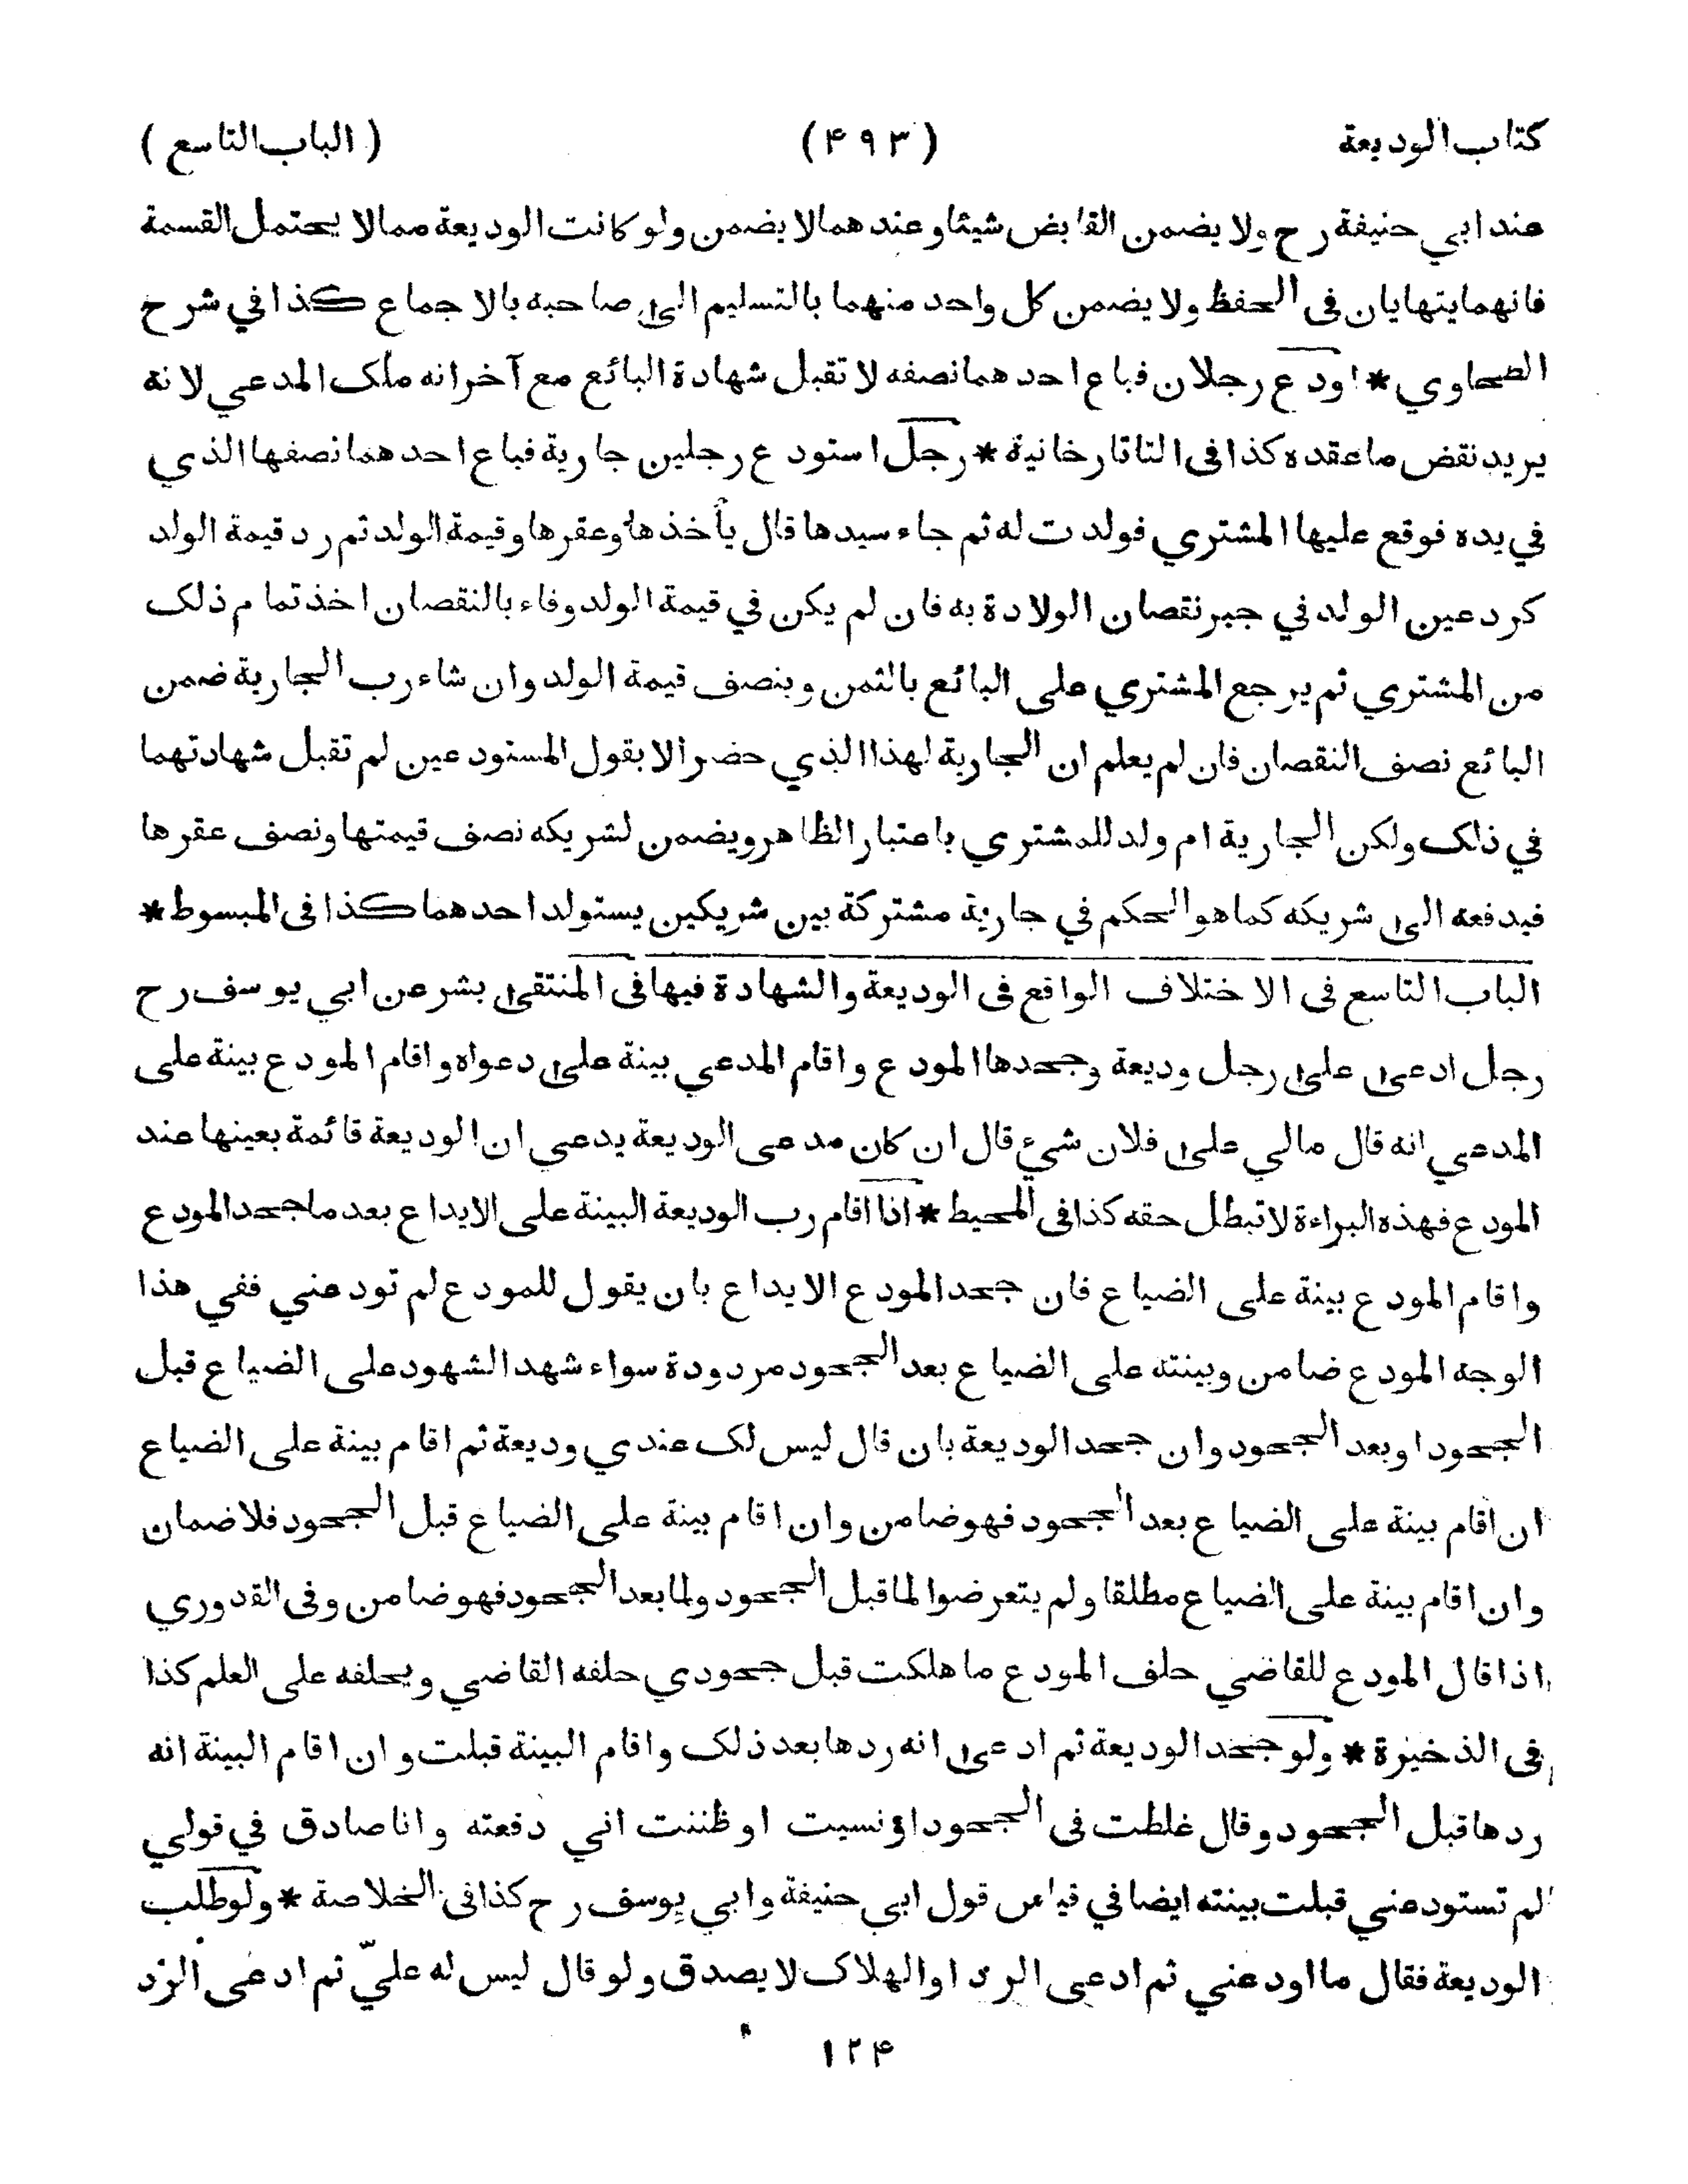 كتاب الوديعة (۴۹۳) (الباب التاسع)
عند ابي حنيفة رح ولا يضمن القابض شيئا وعندهما لا يضمن ولو كانت الوديعة مما لا يحتمل القسمة
فانهما يتهايان فى الحفظ ولا يضمن كل واحد منهما بالتسليم الى صاحبه بالاجماع كذا في شرح
الطحاوي * اودع رجلان فباع احدهما نصفه لا تقبل شهادة البائع مع آخر انه ملك المدعي لانه
يريد نقض ما عقده كذا فى التاتارخانية * رجل استودع رجلين جارية فباع احدهما نصفها الذي
في يده فوقع عليها المشتري فولدت له ثم جاء سيدها قال يأخذها وعقرها وقيمة الولد ثم رد قيمة الولد
كرد عين الولد في جبر نقصان الولادة به فان لم يكن في قيمة الولد وفاء بالنقصان اخذ تمام ذلك
من المشتري ثم يرجع المشتري على البائع بالثمن وبنصف قيمة الولد وان شاء رب الجارية ضمن
البائع نصف النقصان فان لم يعلم ان الجارية لهذا الذي حضر الا بقول المستودعين لم تقبل شهادتهما
في ذلك ولكن الجارية ام ولد للمشتري باعتبار الظاهر ويضمن لشريكه نصف قيمتها ونصف عقرها
فيدفعه الى شريكه كما هو الحكم في جارية مشتركة بين شريكين يستولد احدهما كذا فى المبسوط *
الباب التاسع فى الاختلاف الواقع فى الوديعة والشهادة فيها فى المنتقى بشر عن ابي يوسف رح
رجل ادعى على رجل وديعة وجحدها المودع واقام المدعي بينة على دعواه واقام المودع بينة على
المدعي انه قال مالي على فلان شئ قال ان كان مدعى الوديعة يدعي ان الوديعة قائمة بعينها عند
المودع فهذه البراءة لا تبطل حقه كذا فى المحيط * اذا اقام رب الوديعة البينة على الايداع بعد ما جحد المودع
واقام المودع بينة على الضياع فان جحد المودع الايداع بان يقول للمودع لم تودعني ففي هذا
الوجه المودع ضامن وبينته على الضياع بعد الجحود مردودة سواء شهد الشهود على الضياع قبل
الجحود او بعد الجحود وان جحد الوديعة بان قال ليس لك عندي وديعة ثم اقام بينة على الضياع
ان اقام بينة على الضياع بعد الجحود فهو ضامن وان اقام بينة على الضياع قبل الجحود فلا ضمان
وان اقام بينة على الضياع مطلقا ولم يتعرضوا لما قبل الجحود ولما بعد الجحود فهو ضامن وفى القدوري
اذا قال المودع للقاضي حلف المودع ما هلكت قبل جحودي حلفه القاضي ويحلفه على العلم كذا
فى الذخيرة * ولو جحد الوديعة ثم ادعى انه ردها بعد ذلك واقام البينة قبلت وان اقام البينة انه
ردها قبل الجحود وقال غلطت فى الجحود او نسيت او ظننت اني دفعته وانا صادق في قولي
لم تستودعني قبلت بينته ايضا في قياس قول ابي حنيفة وابي يوسف رح كذا فى الخلاصة * ولو طلب
الوديعة فقال ما اودعني ثم ادعى الرد او الهلاك لا يصدق ولو قال ليس له عليّ ثم ادعى الرد
۱۲۴